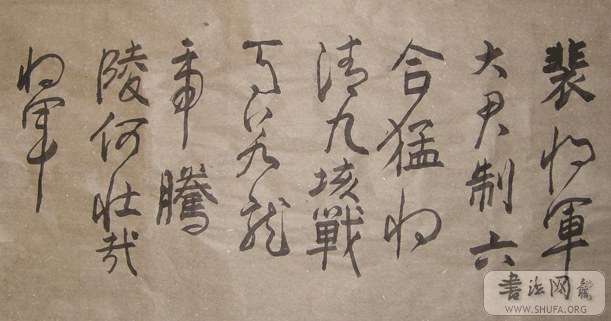 裴将軍
大君制六
合猛将
清九垓戰
馬若龍
虎騰
陵何壮哉
将軍
書法网
WWW.SHUFA.ORG